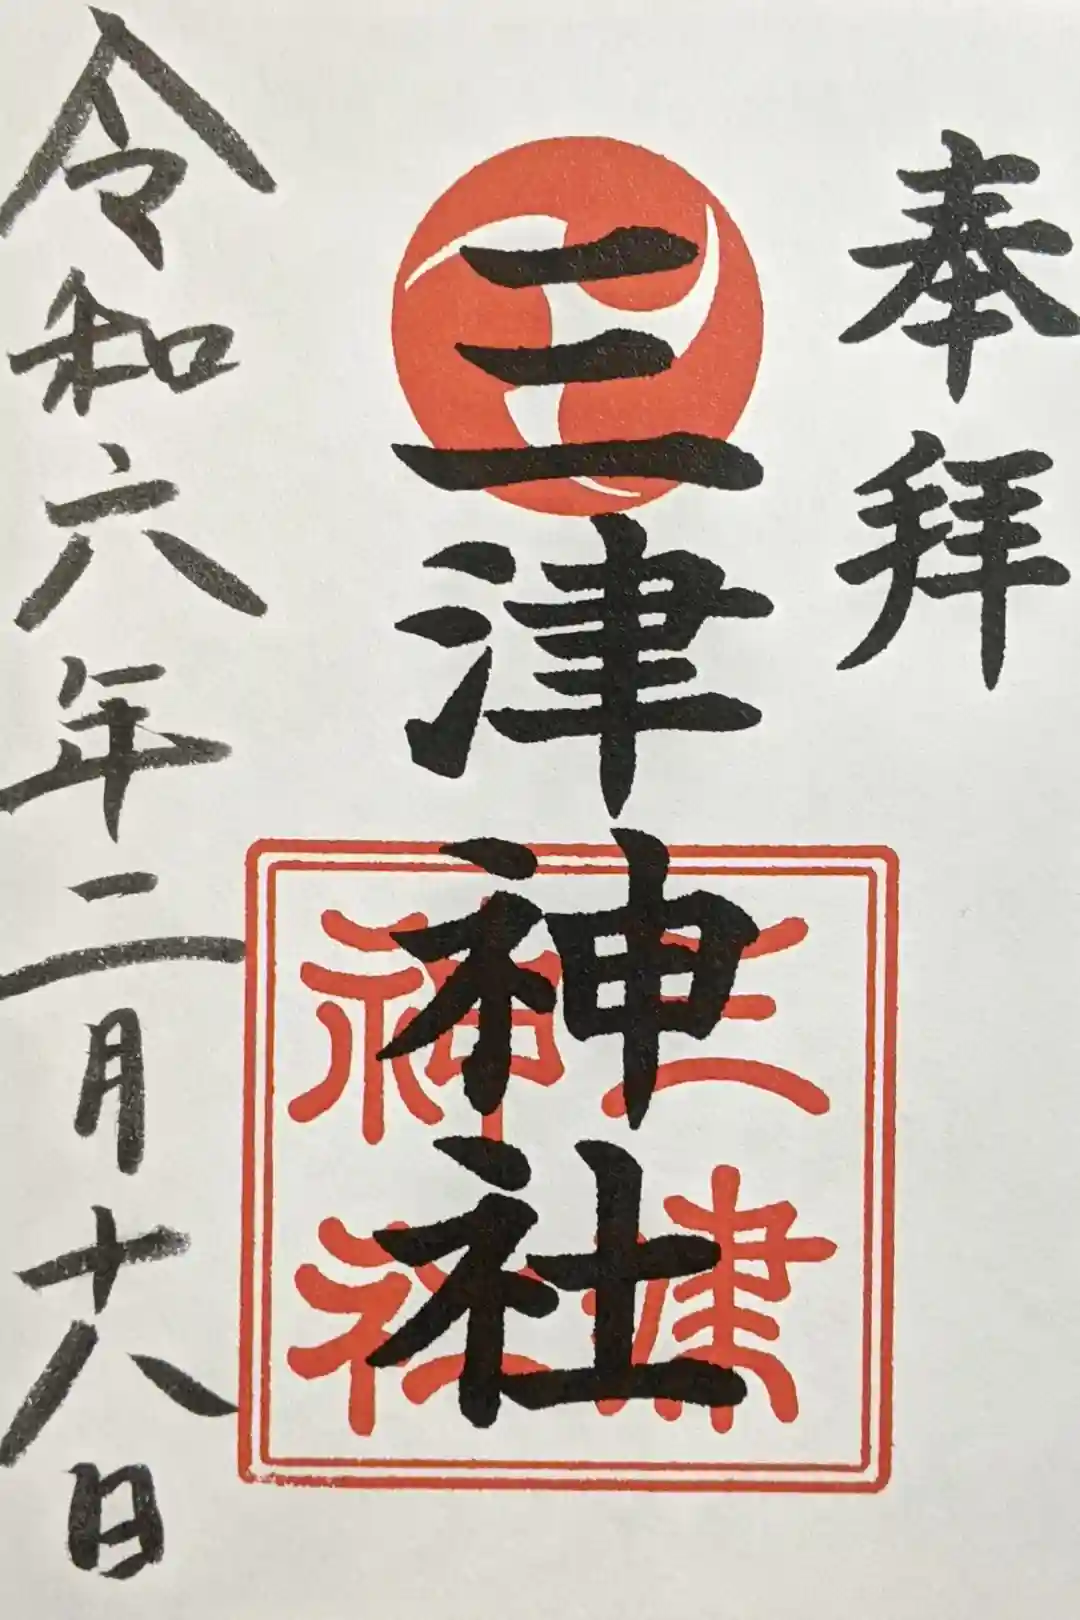 奉拝
三津神社
三津
神社
令和六年二月十八日